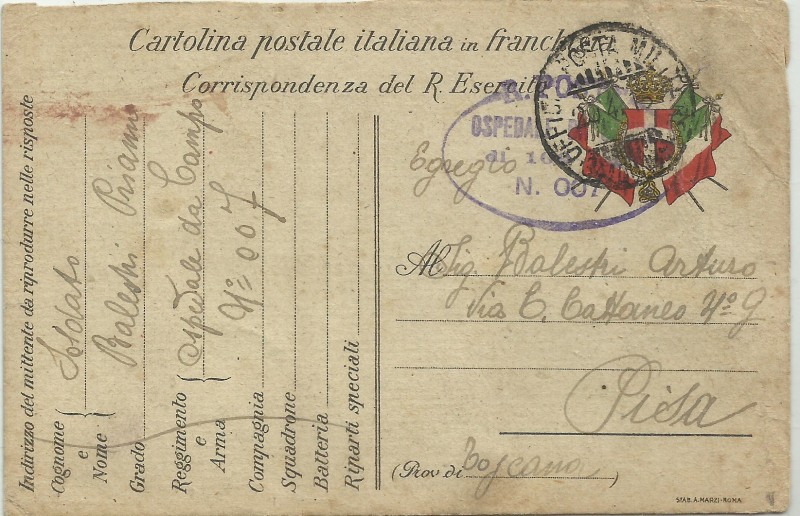 Cartolina postale italiana in franch
Corrispondenza del R. Esercito
R. PO
OSPEDALE
di 10
N. 007
POSTA MILIT
Egregio
Al Sig. Balestri Arturo
Via C. Cattaneo N° 9
Pisa
(Prov. di Toscana)
STAB. A. MARZI-ROMA
Indirizzo del mittente da riprodurre nelle risposte
Cognome e Nome { Soldato
Balestri Priamo
Grado
Reggimento e Arma { Ospedale da Campo
N° 007
Compagnia
Squadrone
Batteria
Riparti speciali